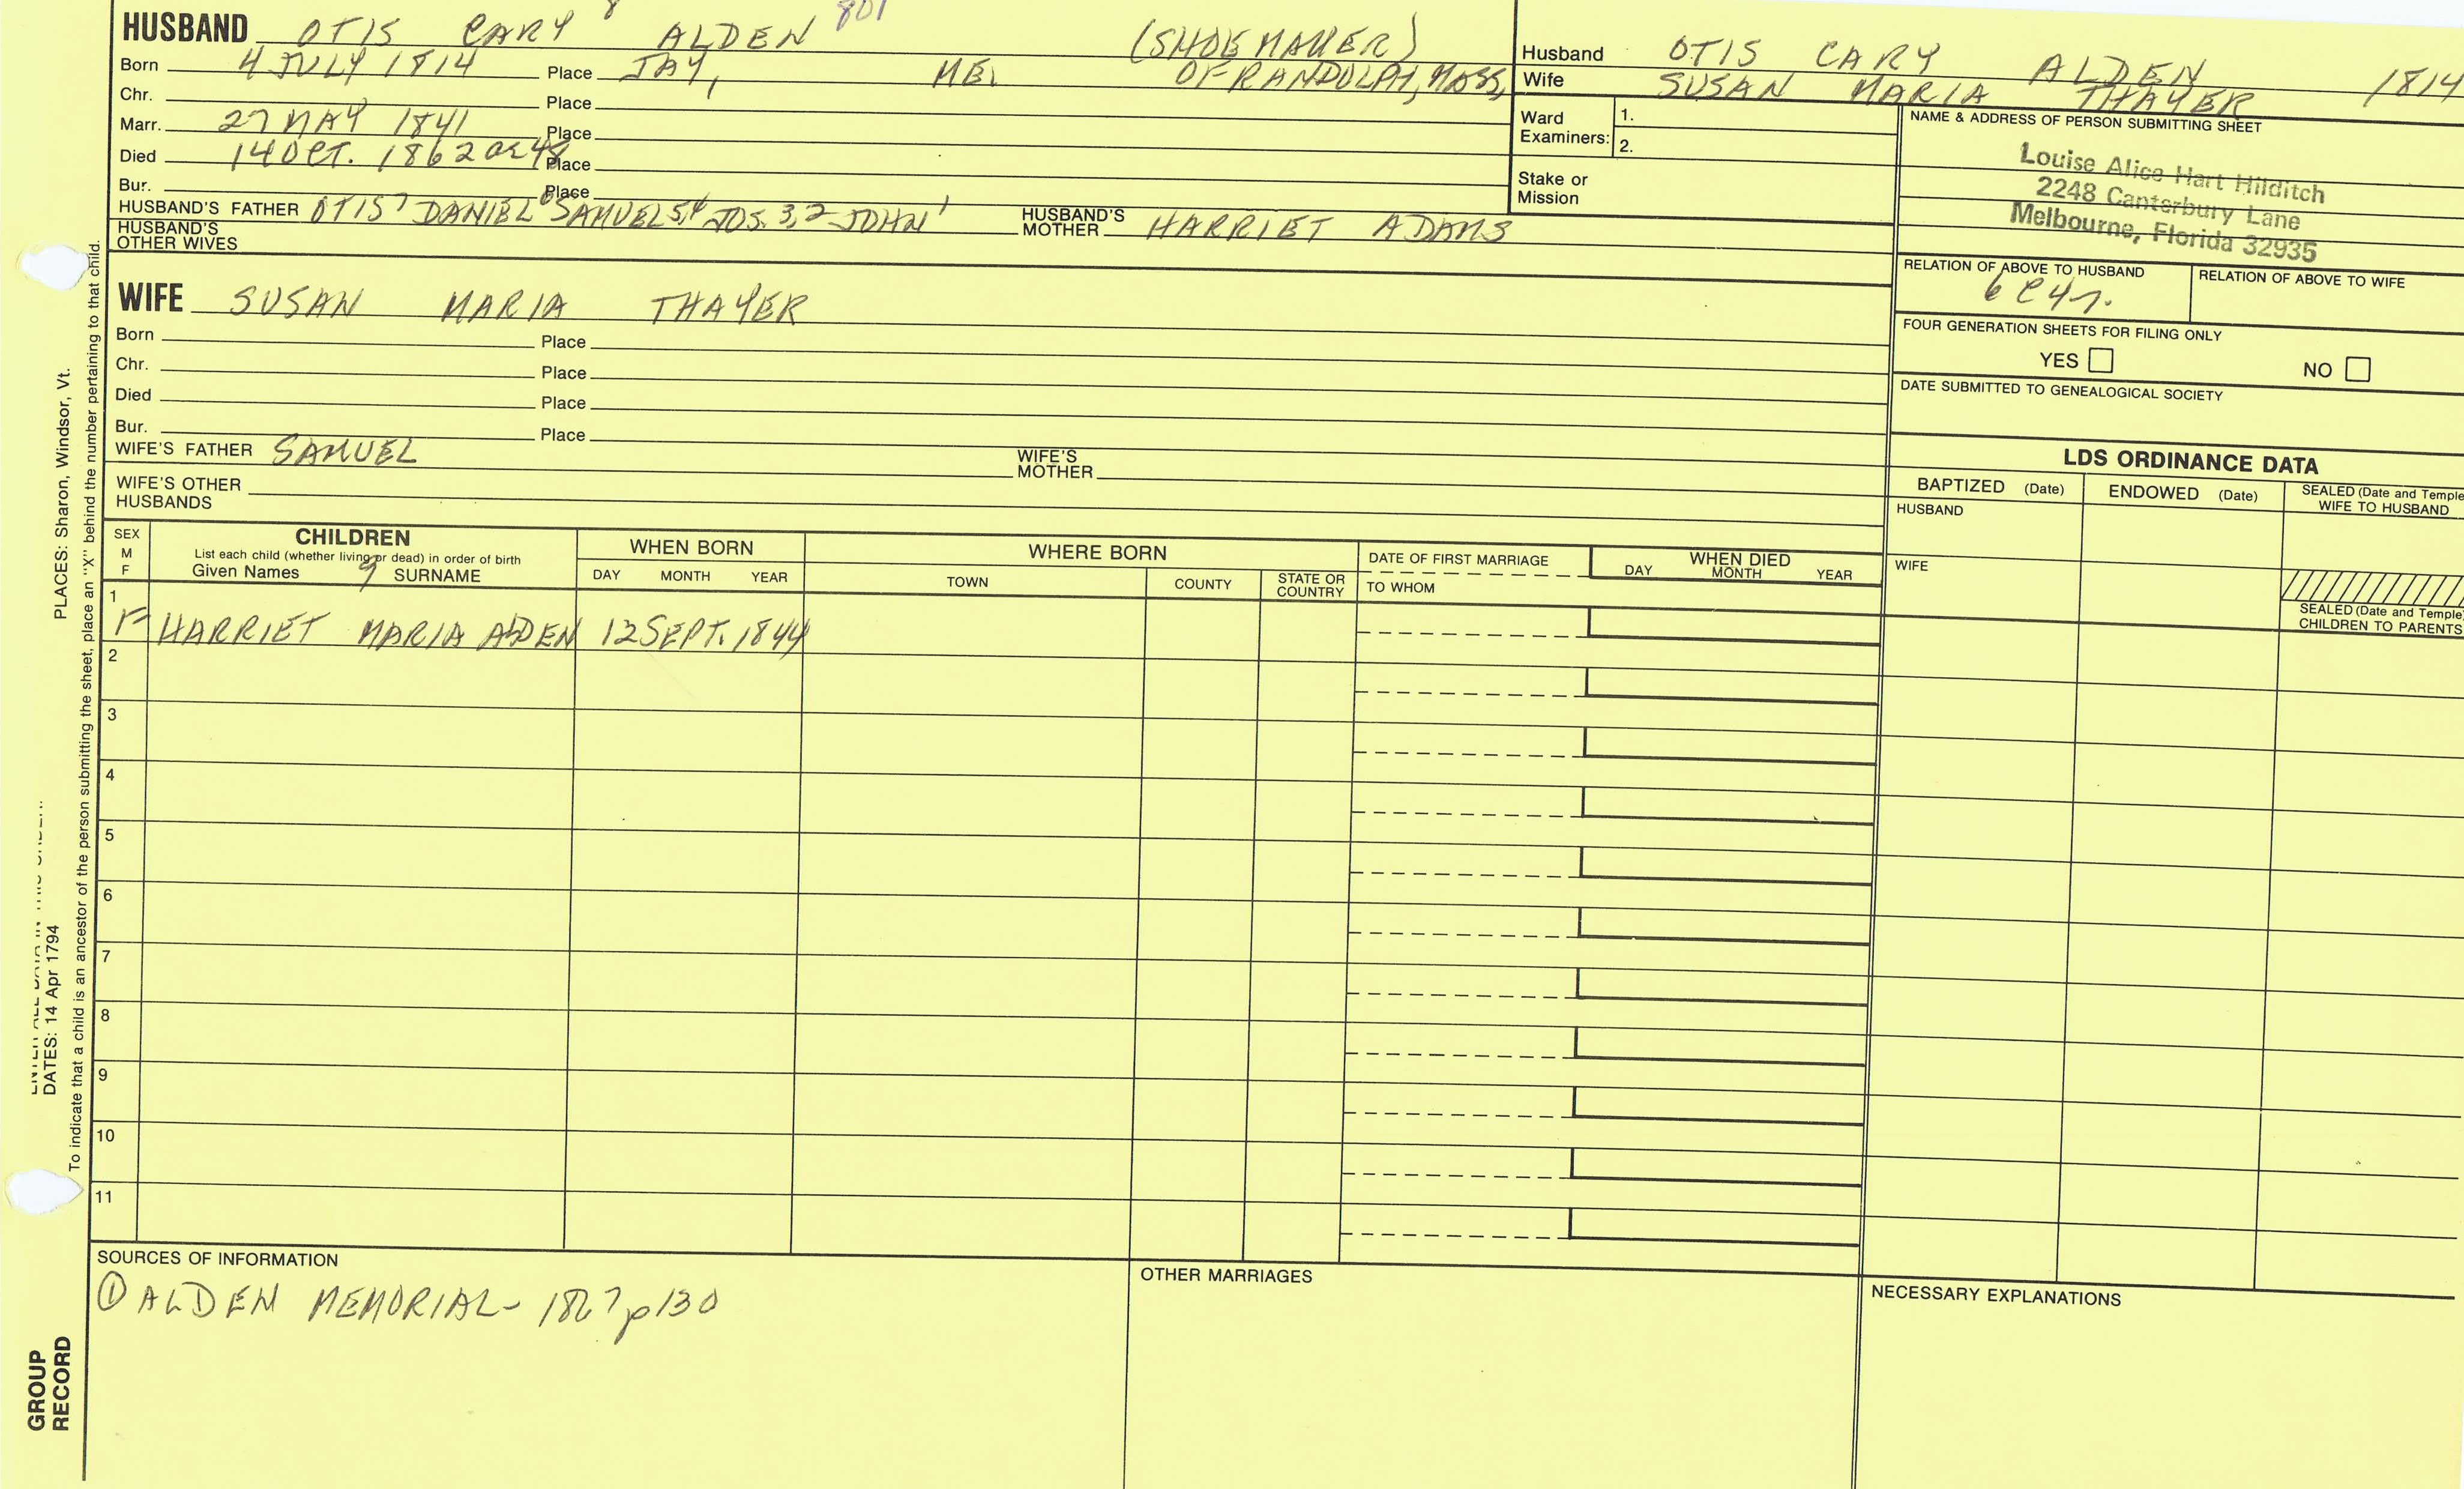 HUSBAND OTIS CARY 8 ALDEN 801 (SHOEMAKER)
Born 4 JULY 1814 Place JAY, ME. OF RANDOLPH, MASS,
Chr. Place
Marr. 27 MAY 1841 Place
Died 14 OCT. 1862 OR 48 Place
Bur. Place
HUSBAND'S FATHER OTIS 7 DANIEL 6 SAMUEL 5,4 JOS. 3,2 JOHN 1 HUSBAND'S MOTHER HARRIET ADAMS
HUSBAND'S OTHER WIVES
WIFE SUSAN MARIA THAYER
Born Place
Chr. Place
Died Place
Bur. Place
WIFE'S FATHER SAMUEL WIFE'S MOTHER
WIFE'S OTHER HUSBANDS
Husband OTIS CARY ALDEN 1814
Wife SUSAN MARIA THAYER
Ward Examiners: 1.
2.
Stake or Mission
NAME & ADDRESS OF PERSON SUBMITTING SHEET
Louise Alice Hart Hilditch
2248 Canterbury Lane
Melbourne, Florida 32935
RELATION OF ABOVE TO HUSBAND RELATION OF ABOVE TO WIFE
6C4r.
FOUR GENERATION SHEETS FOR FILING ONLY
YES NO
DATE SUBMITTED TO GENEALOGICAL SOCIETY
LDS ORDINANCE DATA
BAPTIZED (Date) ENDOWED (Date) SEALED (Date and Temple) WIFE TO HUSBAND
HUSBAND
WIFE
SEALED (Date and Temple) CHILDREN TO PARENTS
SEX M F
CHILDREN
List each child (whether living or dead) in order of birth
Given Names 9 SURNAME
WHEN BORN
DAY MONTH YEAR
WHERE BORN
TOWN COUNTY STATE OR COUNTRY
DATE OF FIRST MARRIAGE
TO WHOM
WHEN DIED
DAY MONTH YEAR
1
F HARRIET MARIA ALDEN 12 SEPT. 1844
2
3
4
5
6
7
8
9
10
11
SOURCES OF INFORMATION
① ALDEN MEMORIAL - 1867 p130
OTHER MARRIAGES
NECESSARY EXPLANATIONS
PLACES: Sharon, Windsor, Vt.
DATES: 14 Apr 1794
To indicate that a child is an ancestor of the person submitting the sheet, place an "X" behind the number pertaining to that child.
GROUP RECORD